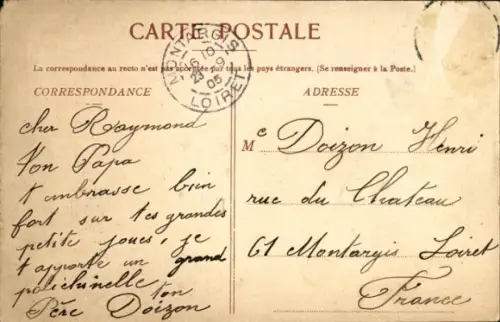 CARTE POSTALE
La correspondance au recto n'est pas acceptée par tous les pays étrangers. (Se renseigner à la Poste.)
CORRESPONDANCE
cher Raymond
Ton Papa
t'embrasse bien
fort sur tes grandes
petite joues, je
t apporte un grand
polichinelle
ton
Père Doizon
MONTARGIS
LOIRET
ADRESSE
Mc Doizon Henri
rue du Chateau
61 Montargis Loiret
France